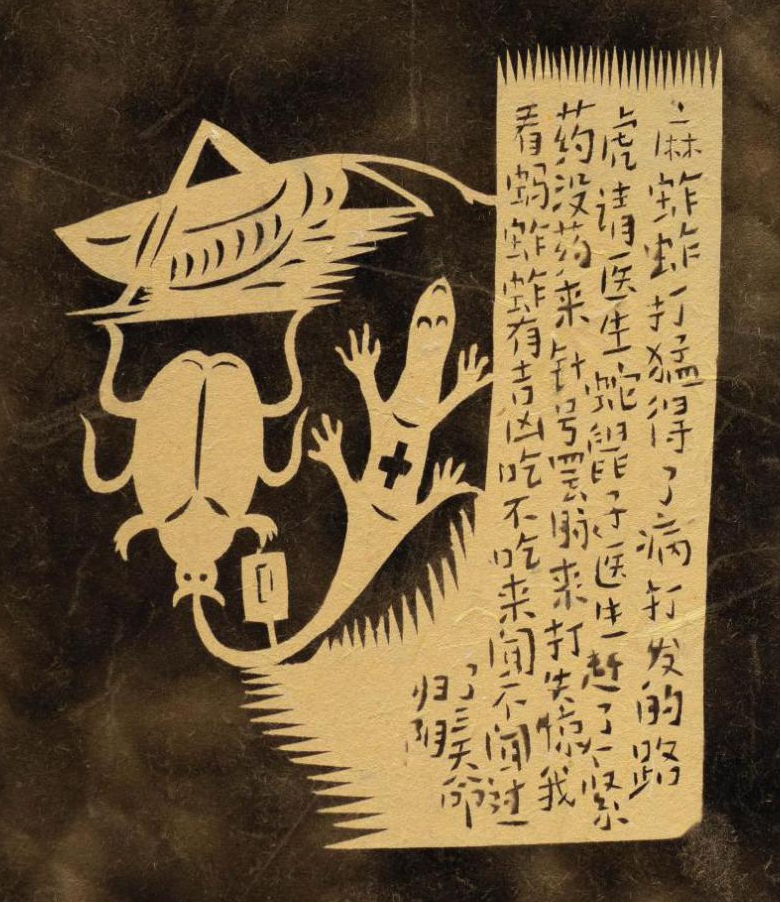 麻蚱蚱打猛得了病打发的路
虎请医生蛇子医生赶了个紧
药没药来针号罢脉来打失惊我
看蚂蚱蚱有吉凶吃不吃来闻不闻过
了三天命
归阴